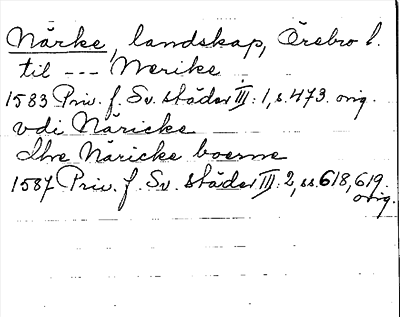 Närke, landskap, Örebro l.
til --- Nerike
1583 Priv. f. Sv. städer III: 1, s. 473. orig.
vdi Näricke
Ihre Näricke boerne
1587 Priv. f. Sv. städer III: 2, ss. 618, 619.
orig.